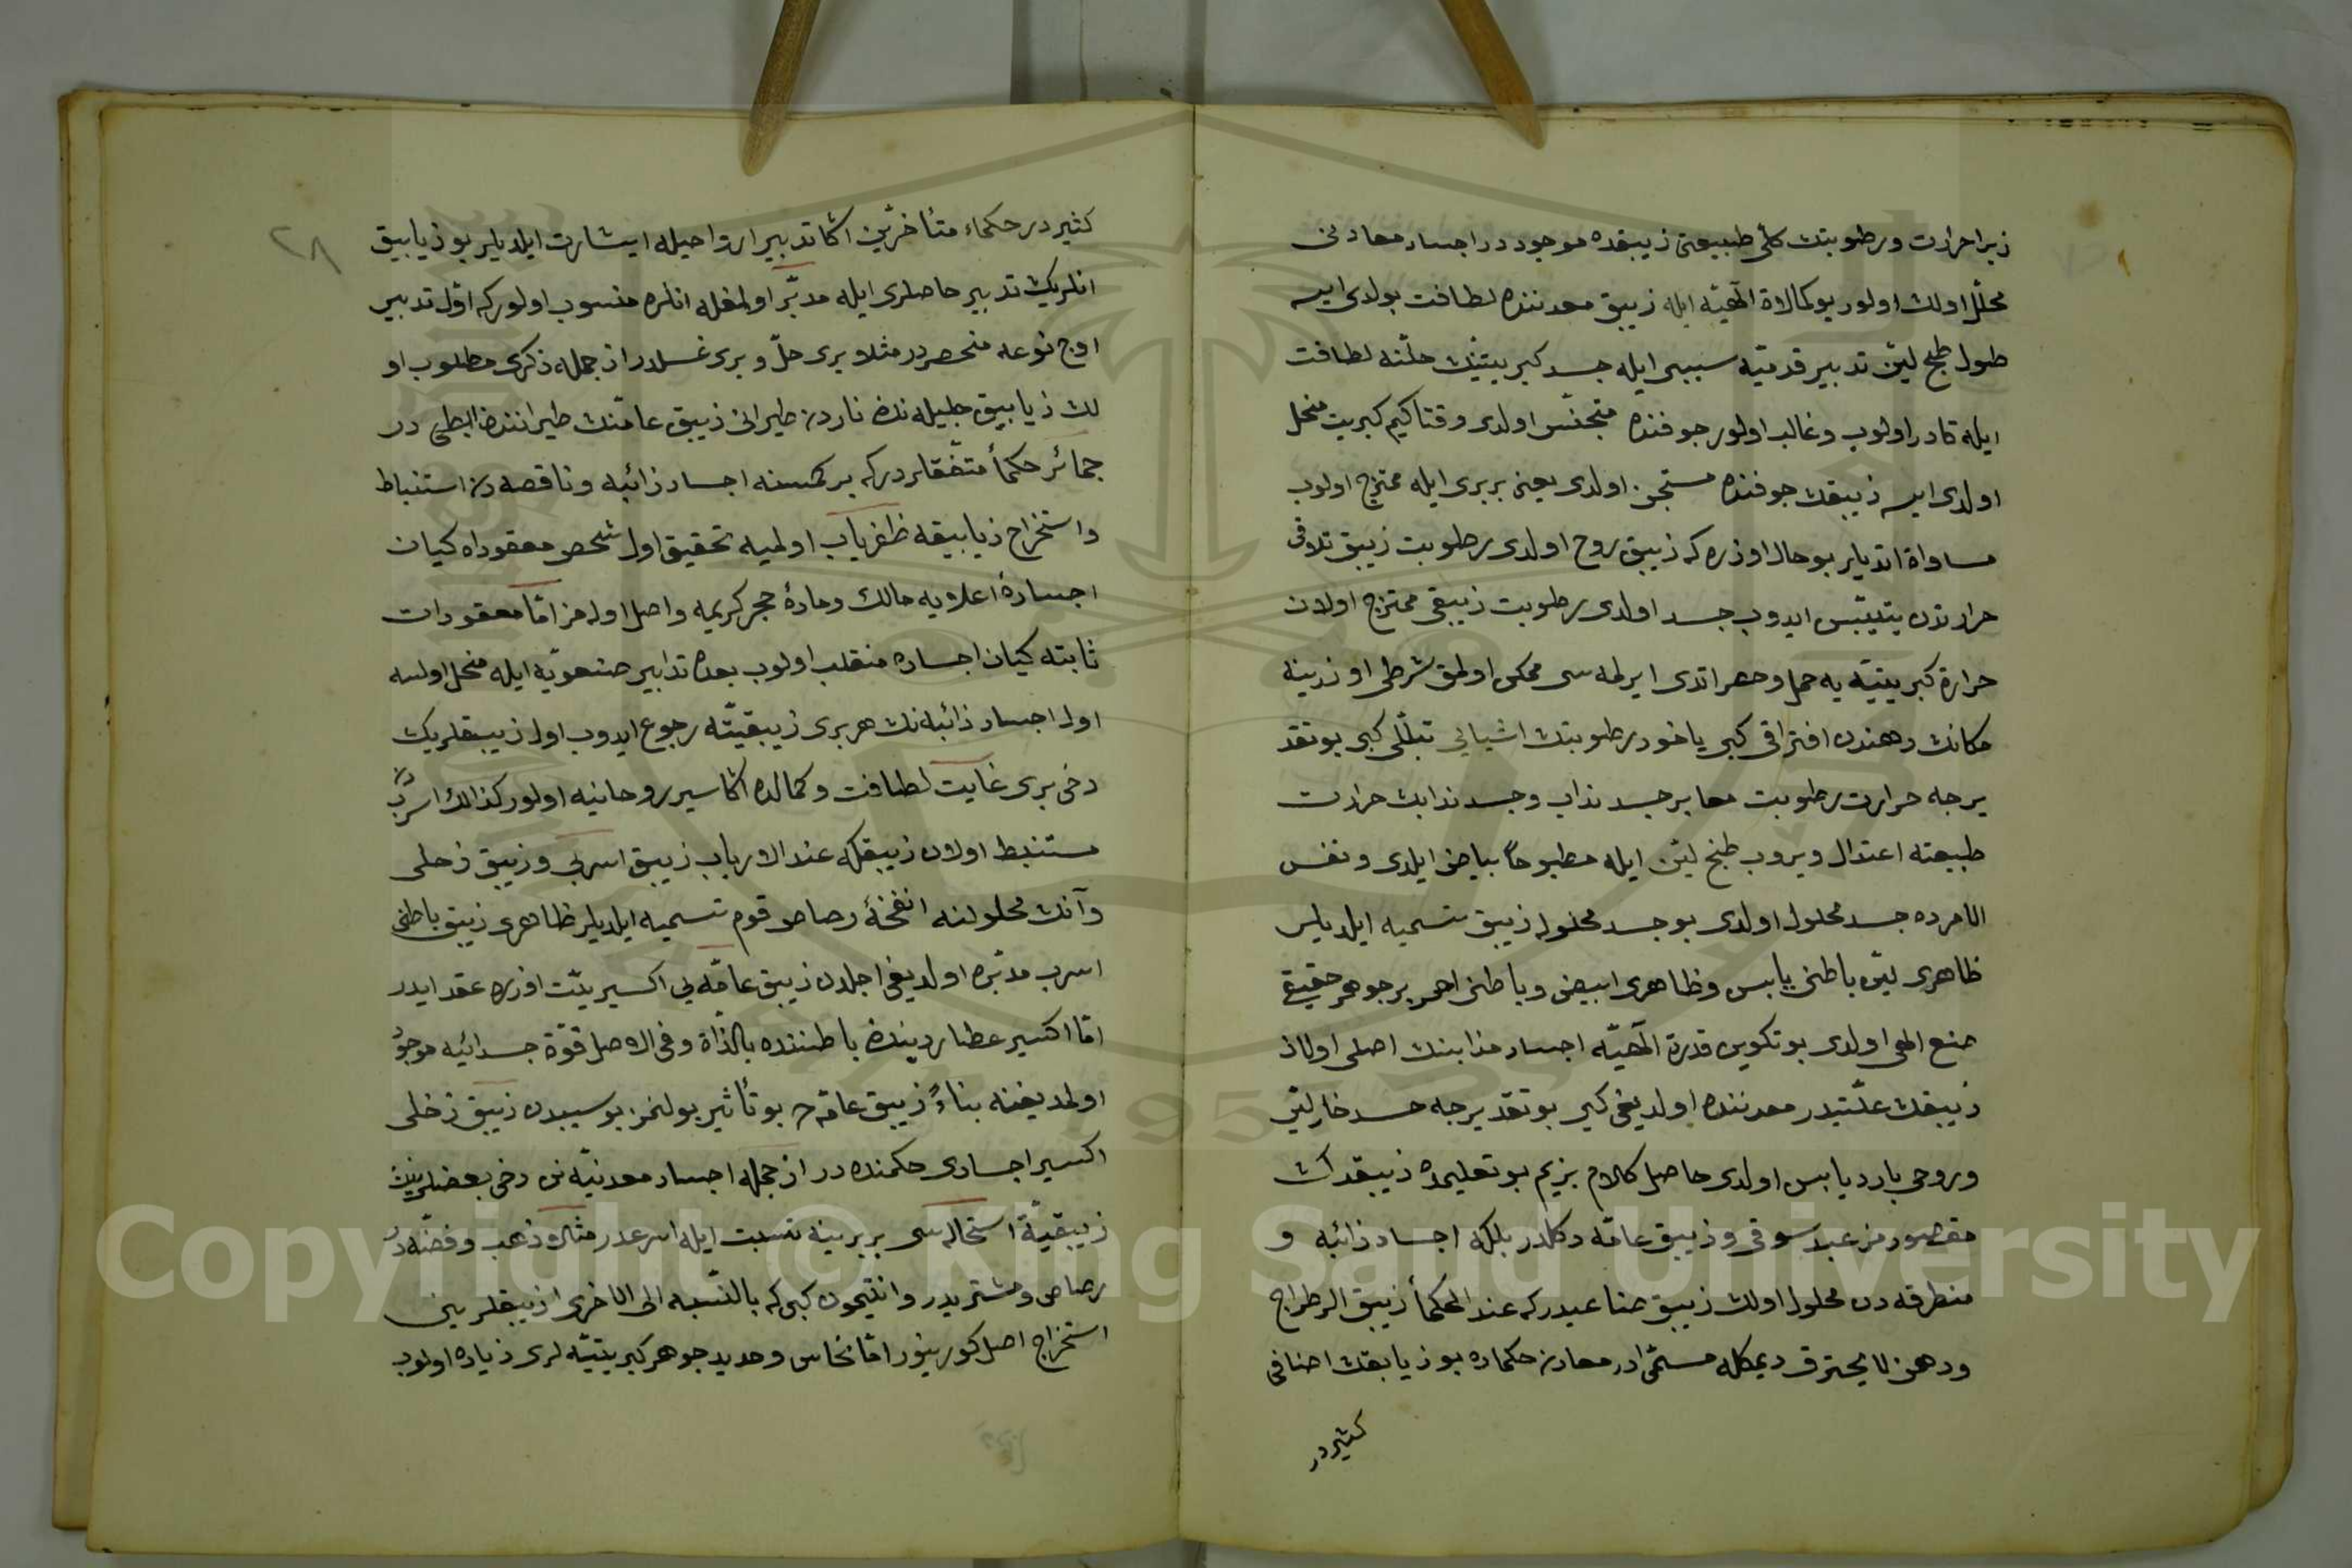 زيرا حرارت ورطوبتك كلّى طبيعتى زيبقده موجوددر اجساد معادنى
محلّل اولك اولور بو كمالاة الٓهيّه ايله زيبق معدننده لطافت بولدى ايسه
طول طبخ ليّن تدبير قدميّه سببى ايله جسد كبريتينك حلّنه لطافت
ايله قادر اولوب وغالب اولور جوفنده متجنّس اولدى وقتاكيم كبريت منحل
اولدى ايسه زيبقك جوفنده مستجن اولدى يعنى بربرى ايله ممتزج اولوب
مساواة اتديلر بو حال اوزره كه زيبق روح اولدى رطوبت زيبق تلاقى
حرارتدن يتيبّس ايدوب جسد اولدى رطوبت زيبقى ممتزج اولان
حرارة كبريتيّه يه حمل وحصر اتدى ايرلمه سى ممكن اولمق شرطى اوزرينه
مكانك دهندن افتراقى كبى ياخود رطوبتك اشيايى تبلّلى كبى بو تقد
يرجه حرارت رطوبت معا بر جسد نداب وجسد ندابك حرارت
طبيعته اعتدال ويروب طبخ ليّن ايله مطبوخاً بياض ايلدى ونفس
الامرده جسد محلول اولدى بو جسد محلوله زيبق تسميه ايلديلر
ظاهرى ليّن باطنى يابس وظاهرى ابيض وباطنى احمر بر جوهر حقيقى
صنع الهى اولدى بو تكوين قدرة الٓهيّه اجساد مذابنك اصلى اولان
زيبقك علّتيدر معدننده اولديغى كبى بو تقديرجه جسد حار ليّن
وروحى بارد يابس اولدى حاصل كلام بزيم بو تعليمده زيبقدن
مقصورمز عبد سوقى وزيبق عامّه دكلدر بلكه اجساد ذائبه و
منطرقه دن محلول اولان زيبق صناعيدركه عند الحكمأ زيبق الرطراج
ودهن لا يحترق ديمكله مسمّى در معادن حكماده بو زيابقك اصنافى
كثيردر
٢٨
كثيردر حكماء متأخرين اكا تدبير ارواحيله ايشارت ايلديلر بو زيابيق
انلريك تدبير حاصلرى ايله مدبّر اولمغله انلره منسوب اولوركه اوّل تدبير
اوچ نوعه منحصردر مثلا برى حلّ وبرى غسلدر از جمله ذكرى مطلوب او
لان زيابيق جليله نك ناردن طيرانى زيبق عامّنك طيرانندن ابطى در
جمائر حكمأ متفقلردركه بر كمسنه اجساد ذائبه وناقصه دن استنباط
واستخراج زيابيقه ظفرياب اولميه تحقيق اول شخص معقوداه كيان
اجساده اعلاويه مالك ومادهٔ حجر كريمه واصل اوله مز امّا معقودات
ثابته كيان اجساده منقلب اولوب بعده تدابير صنعويّه ايله منحل اولسه
اول اجساد ذائبه نك هر برى زيبقيّته رجوع ايدوب اول زيبقلريك
دخى برى غايت لطافت وكمالده اكاسير روحانيه اولور كذالك اسربدن
مستنبط اولان زيبقكه عند الارباب زيبق اسربى وزيبق زحلى
وآنك محلولنه انفخهٔ رصاص قوم تسميه ايلديلر ظاهرى زيبق باطنى
اسرب مدبّره اولديغى اجلدن زيبق عامّه يى اكسيريّت اوزره عقد ايدر
امّا اكسير عطاردينك باطننده بالذاة وفى الاصل قوّة جسدانيه موجود
اولمديغنه بناءً زيبق عامّه ده بو تأثير بولنمز بو سببدن زيبق زحلى
اكسير اجسادى حكمنده در از جمله اجساد معدنيّه نك دخى بعضلرينك
زيبقيّة استحاله سى بربرينه نسبت ايله اسرعدر مثلا وذهب وفضّه در
رصاص ومشتريدر وانتيمون كبى كه بالنّسبه الى الاخرى زيبقلرينى
استخراج اصل كورينور امّا نحاس وحديد جوهر كبريتيّه لرى زياده اولوب